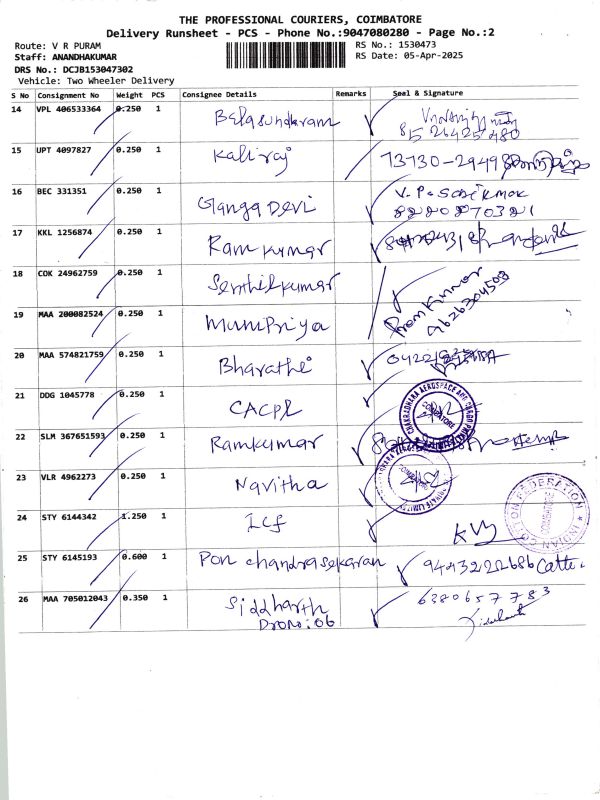 THE PROFESSIONAL COURIERS, COIMBATORE
Delivery Runsheet - PCS - Phone No.:9047080280 - Page No.:2
Route: V R PURAM
RS No.: 1530473
Staff: ANANDHAKUMAR
RS Date: 05-Apr-2025
DRS No.: DCJB153047302
Vehicle: Two Wheeler Delivery
S No Consignment No Weight PCS Consignee Details Remarks Seal & Signature
14 VPL 406533364 0.250 1 Belasundharam
15 UPT 4097827 0.250 1 Kaliraj 73730-29498
16 BEC 331351 0.250 1 Ganga Devi V.P.
8220870321
17 KKL 1256874 0.250 1 Ramkumar
18 COK 24962759 0.250 1 Senthilkumar
19 MAA 200082524 0.250 1 Munipriya Premkumar
9626304508
20 MAA 574821759 0.250 1 Bharathi
21 DDG 1045778 0.250 1 CACPL
CHAKRADHARA AEROSPACE AND CARGO PRIVATE LIMITED
COIMBATORE
22 SLM 367651593 0.250 1 Ramkumar
23 VLR 4962273 0.250 1 Navitha
COIMBATORE
24 STY 6144342 1.250 1 ICF
INDIAN COTTON FEDERATION
25 STY 6145193 0.600 1 Pon chandrasekaran
26 MAA 705012043 0.350 1 Siddharth 6380657783
DRONO:06